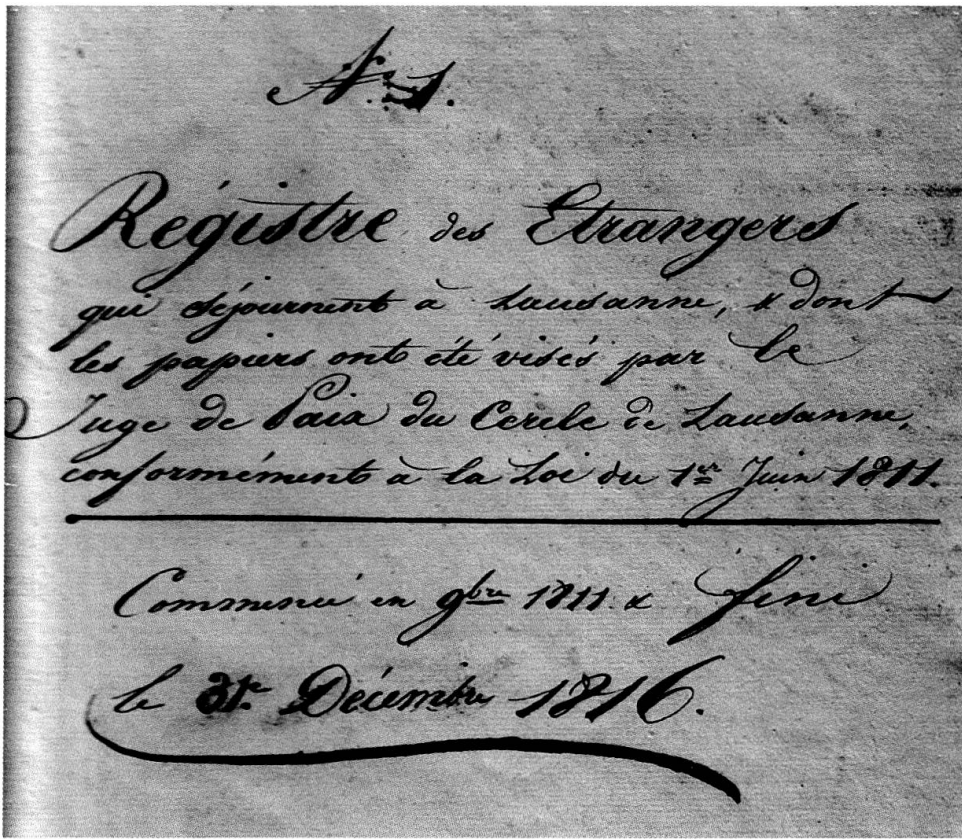 N.° 1.
Régistre des Etrangers
qui séjournent à Lausanne, & dont
les papiers ont été visés par le
Juge de Paix du Cercle de Lausanne,
conformément à la Loi du 1er Juin 1811.
Commencé en 9bre 1811. & fini
le 31. Décembre 1816.